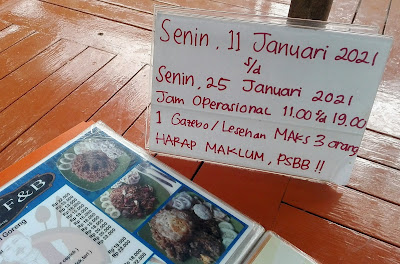 Senin, 11 Januari 2021
s/d
Senin, 25 Januari 2021
Jam Operasional 11.00 s/d 19.00
1 Gazebo/Lesehan MAks 3 orang
HARAP MAKLUM, PSBB !!
F & B
Goreng